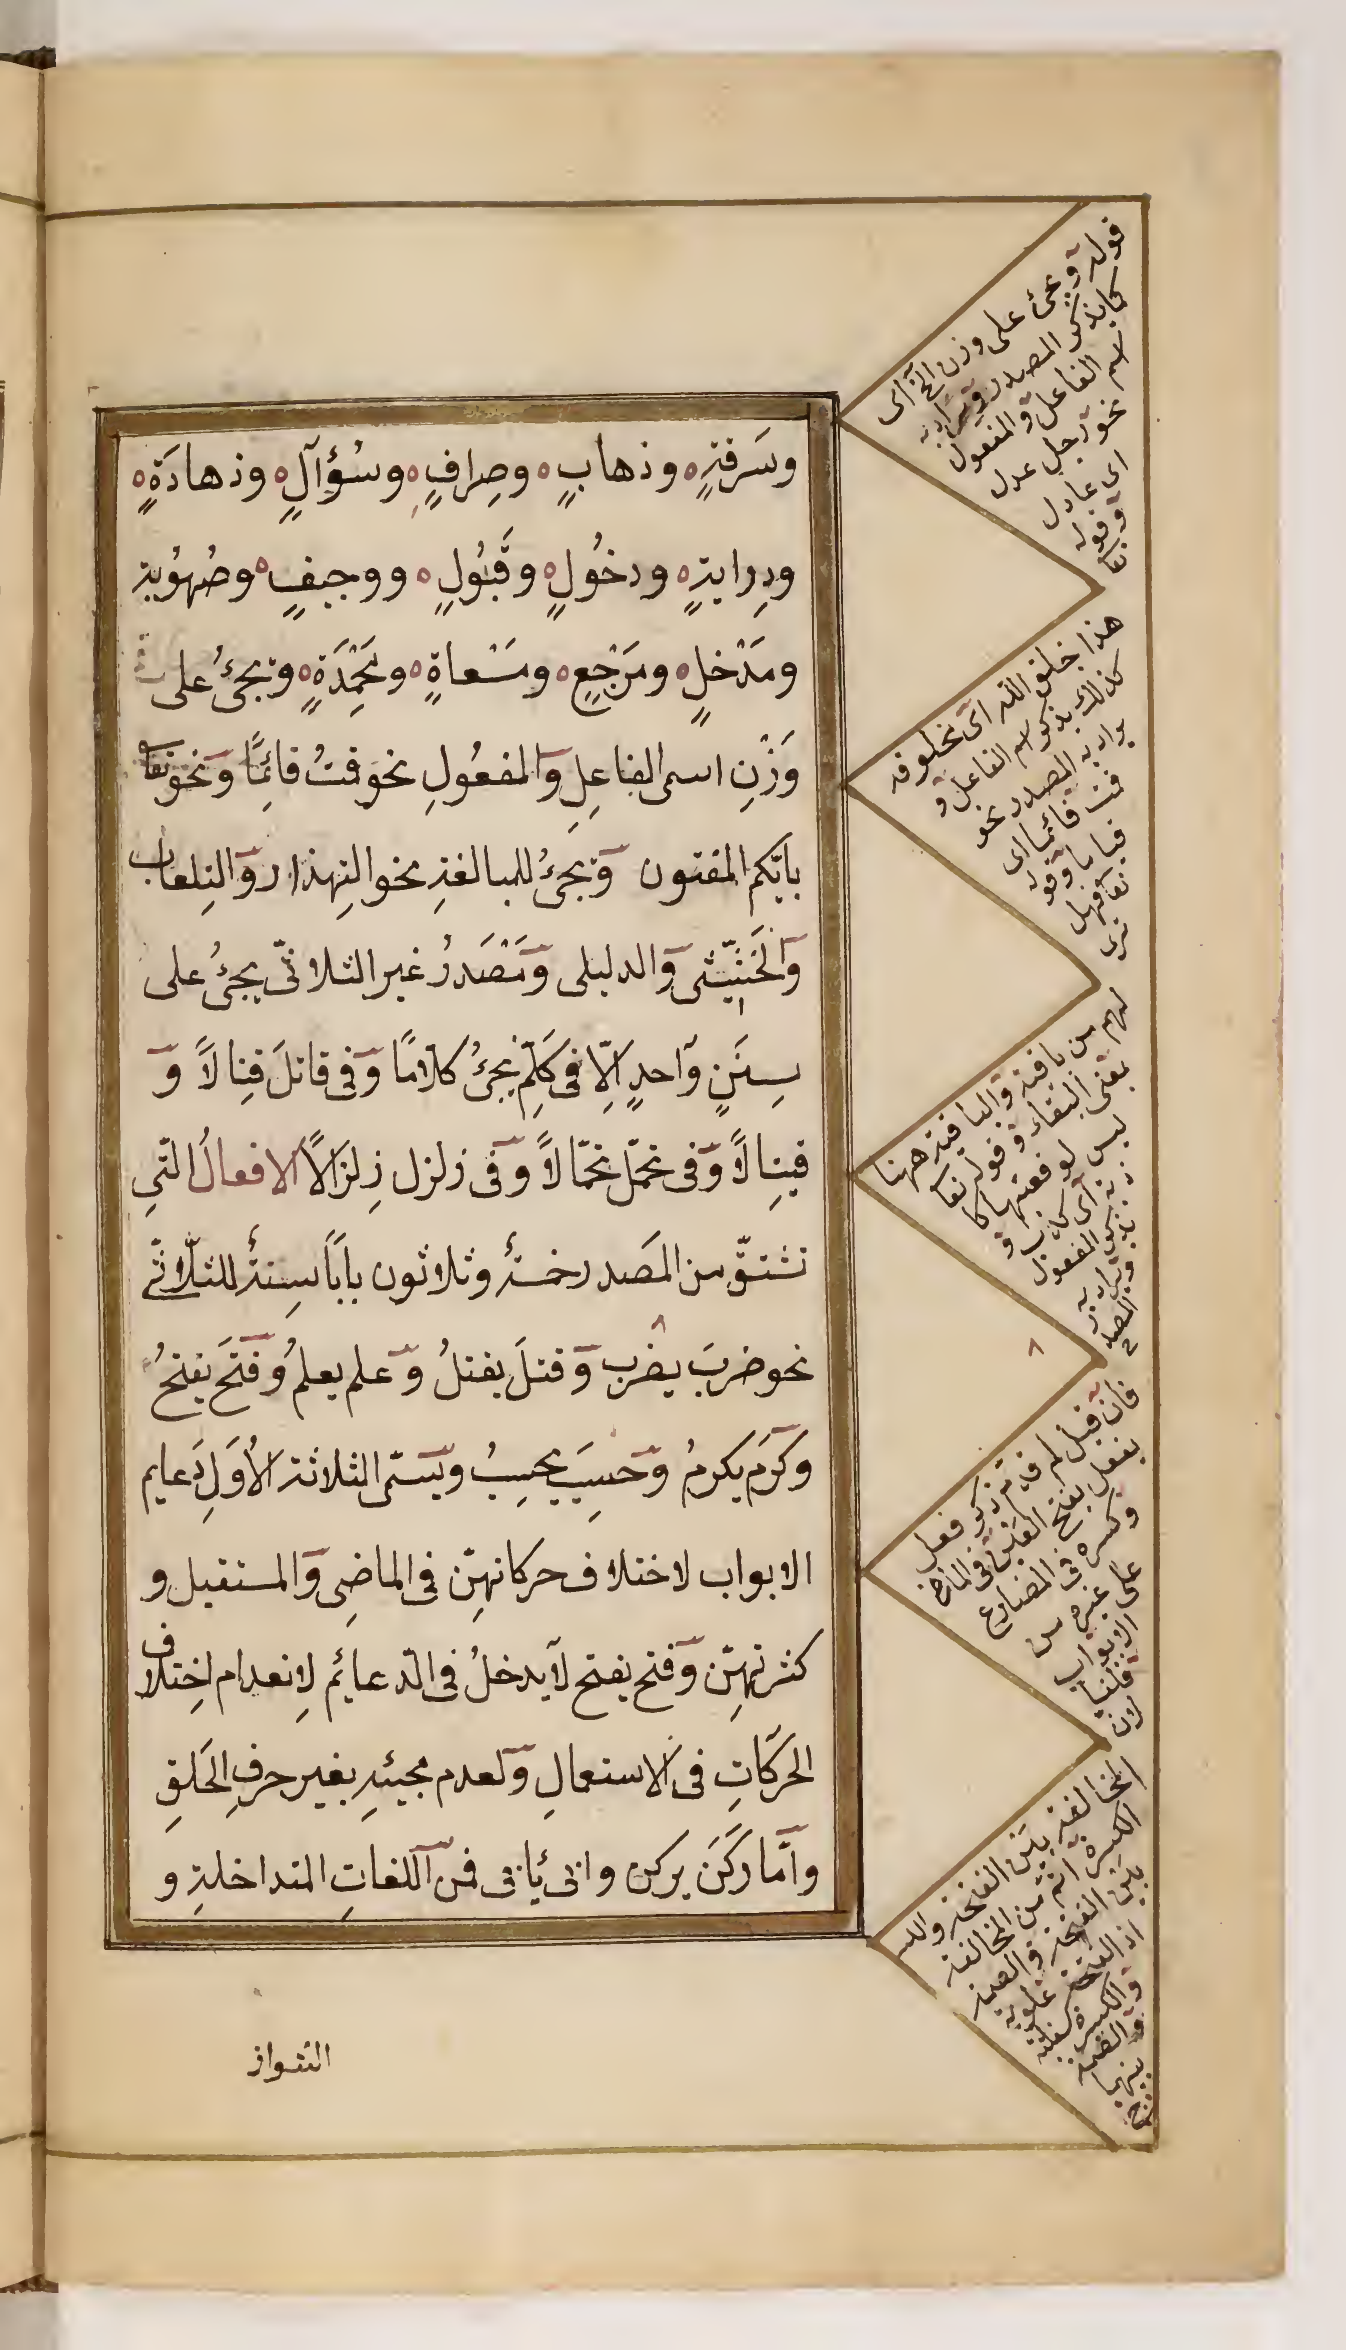 وسَرقةٍ وذهابٍ وصِرافٍ وسُؤآلٍ وزهادَةٍ
ودِرايةٍ ودخُولٍ وقَبُولٍ ووجيفٍ وصُهُوبة
ومَدْخلٍ ومَرْجِعٍ ومَسْعاةٍ ومَحْمِدَةٍ ويجئُ على
وَزْنِ اسمى الفاعِلِ وَالمفعُولِ نحو قمتُ قائِمًا وَنحو تعا
بايّكم المفتون وَيجئُ للمبالغةِ نحو التهذار وَالتِلعاب
وَالحَثِيّثى وَالدليلى وَمَصْدَرُ غير الثلاثىّ يجئُ على
سِنَنٍ وَاحدٍ اِلّا فى كَلّم يجئُ كلاّمًا وَفى قاتلَ قِتالاً وَ
قيتِالاً وَفى تحمّل تحمّالاً وَفى زلزل زِلزَالاً الافعالُ الّتى
تشتقّ من المَصدر خمسةٌ وثلاثون بابًا سِتةٌ للثلّاثى
نحو ضربَ يضرب وَقتلَ يقتلُ وَعلم يعلمُ وَفتَحَ يفتحُ
وكَرَم يكرمُ وَحسِبَ يحسِبُ ويسَمّى الثلاثة الاُوَلِ دَعايم
الابواب لاختلاف حركاتهنّ فى الماضِى وَالمستقبل و
كثرتهِنّ وَفتح يفتح لاَيدخلُ فى الدّعائم لاِنعدام اختِلاف
الحرَكاتِ فى الاستعمالِ وَلعدم مجيئهِ بغير حرفِ الحَلقِ
وَامّا ركَنَ يركن وابَى يأبى فمن اللغاتِ المتداخلةِ و
الشواذ
قوله ويجئ على وزن الخ اى
كما يذكر المصدر ويراد به
اسم الفاعل والمفعول
نحو رجل عدل
اى عادل
وقوله
تعا
هذا خلق الله اى مخلوقه
كذلك يذكر اسم الفاعل و
يراد به المصدر نحو
قمت قائما اى
قياما وقوله
تعا فهل
ترى
لهم من باقية والباقية ههنا
بمعنى البقاء وقوله تعا
ليس لوقعتها كا
ذبة اى كذب و
يذكر المفعول
ويراد به
المصدر
فان قيل لم قدم ذكر فعل
يفعل بفتح العين فى الماض
وكسره فى المضارع
على غيره من
الابواب
قلنا
لان
المخالفة بين الفتحة والكسر
الكسرة اتم من المخالفة
بين الفتحة والضمة
اذ الفتحة علوية
والكسرة سفلية
والضمة
بينهما